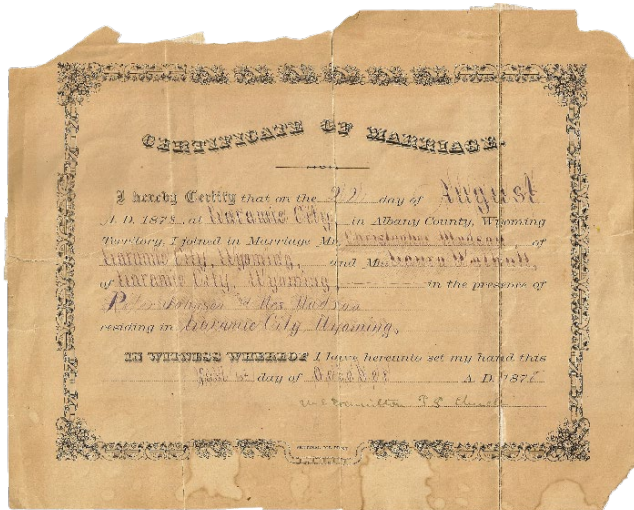 CERTIFICATE OF MARRIAGE.
I hereby Certify that on the day of August
A. D. 187 at Laramie City in Albany County, Wyoming
Territory, I joined in Marriage Mr. Christopher of
Laramie City, Wyoming, and M Laura
of Laramie City, Wyoming in the presence of
Peter Johnson
residing in Laramie City Wyoming,
IN WITNESS WHEREOF I have hereunto set my hand this
day of October A. D. 187